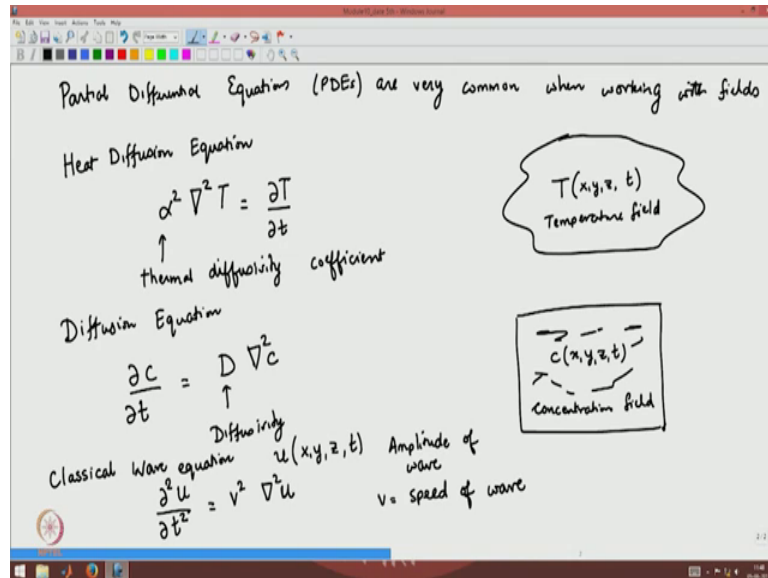 Module10_date 5th - Windows Journal
File Edit View Insert Actions Tools Help
Page Width
B I
Partial Differential Equations (PDEs) are very common when working with fields
Heat Diffusion Equation
α² ∇² T = ∂T/∂t
↑
thermal diffusivity coefficient
T(x,y,z, t)
Temperature field
Diffusion Equation
∂c/∂t = D ∇²c
↑
Diffusivity
c(x,y,z,t)
concentration field
Classical Wave equation u(x,y,z,t) Amplitude of wave
∂²u/∂t² = v² ∇²u v = speed of wave
NPTEL
2/2